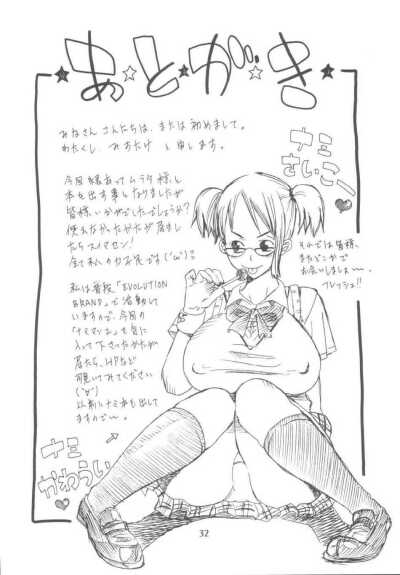 あとがき
みなさん こんにちは、または初めまして。
わたくし、みすたけ と申します。
今回 縁あって ムラタ様と
本を出す事になりましたが
皆様いかがでしたでしょうか?
使えなかったかたが居まし
たらスイマセン!
全て私の力不足です('ω')?
私は普段「EVOLUTION
BRAND」で活動して
いますので、今回の
「ナミマン」を気に
入って下さったかたが
居たら、HPなど
覗いてみてください
('∀')
以前にナミ本も出して
ますので〜。
ナミ
さいこー
それでは皆様、
またどこかで
お会いしましょ〜。
フレッシュ!!
ナミ
かわうい
32